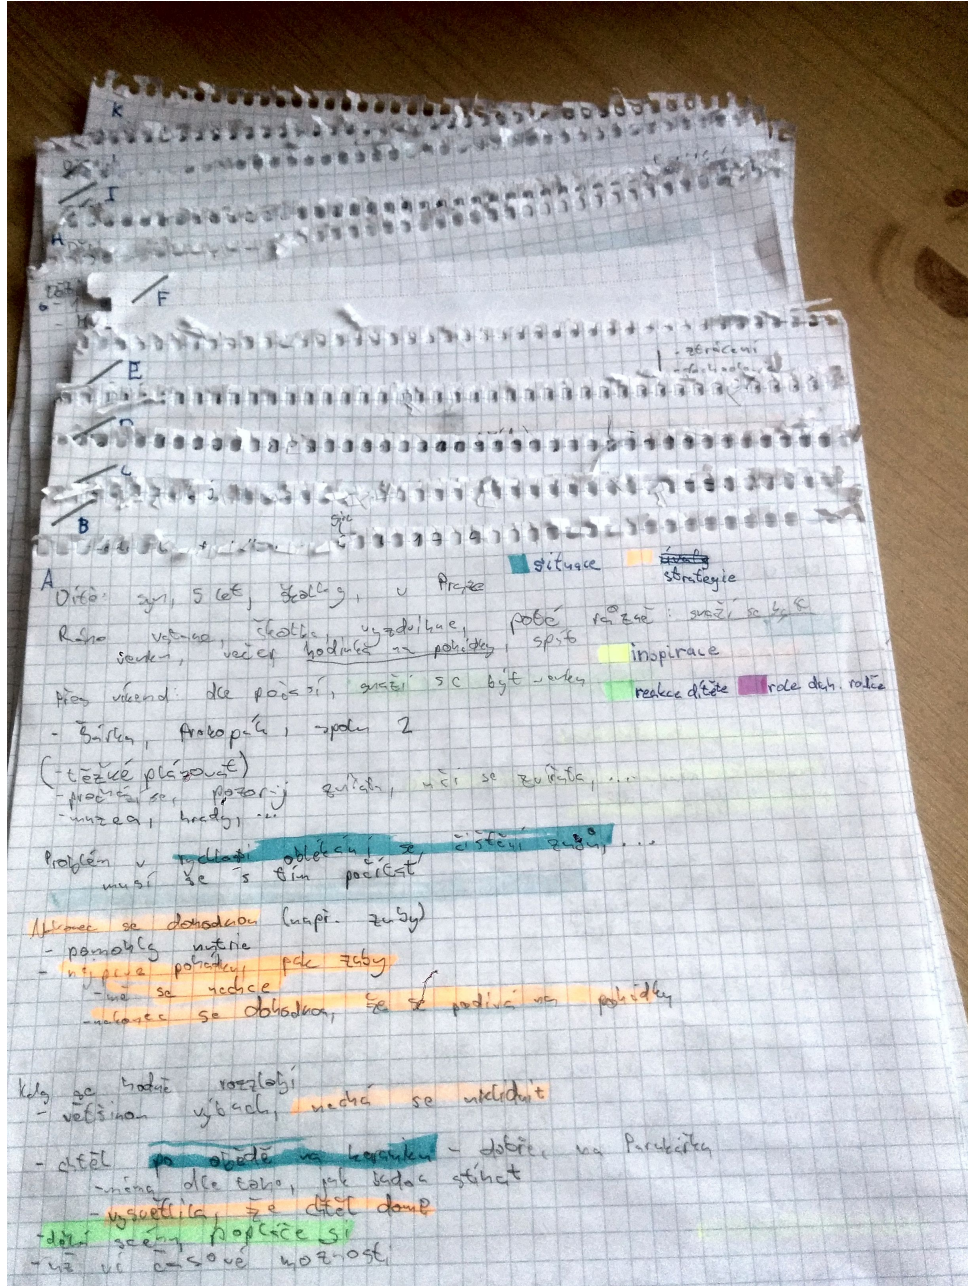 K
I
H
F
E
- ztrácení
C
B
A
situace
strategie
Dítě: syn, 5 let, školka, v Praze
Ráno vstane, školka, vyzdvihne, poté různě: snaží se být
venku, večer hodinka na pohádky, spát
inspirace
reakce dítěte
role druh. rodiče
Přes víkend: dle počasí, snaží se být venku
- Šárka, Prokopák, spolu 2
(- těžké plánovat)
- prochází se, pozorují zvířata, učí se zvířata, ...
- muzea, hrady, ...
Problém v rychlosti oblékání se, čištění zubů, ...
musí se s tím počítat
Nakonec se dohodnou (např. zuby)
- pomohly nutrie
- nejprve pohádku, pak zuby
- se nechce
- nakonec se dohodnou, že se podívá na pohádky
Když se hodně rozzlobí
- většinou výbuch, nechá se uklidnit
- chtěl po obědě na keramiku - dobře, na Parukářku
dle toho, jak budou stíhat
- vysvětlila, že chtěl domů
- dělá scény, popláče si
- už ví časové možnosti